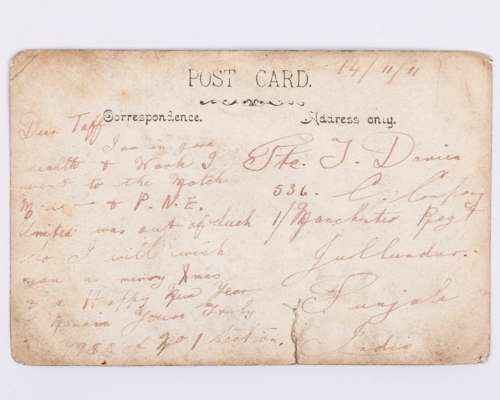 POST CARD.
14/11/11
Correspondence.
Address only.
Dear Taff
I am in good
health & Work I
went to the Match
& P.N.E.
United was out of luck
so I will wish
you a merry Xmas
& a Happy New Year
Remain Yours Truly
of No 1 Section.
Pte. J. Davies
536. C. Company
1/Manchester Regt
Jullundur.
Punjab
India